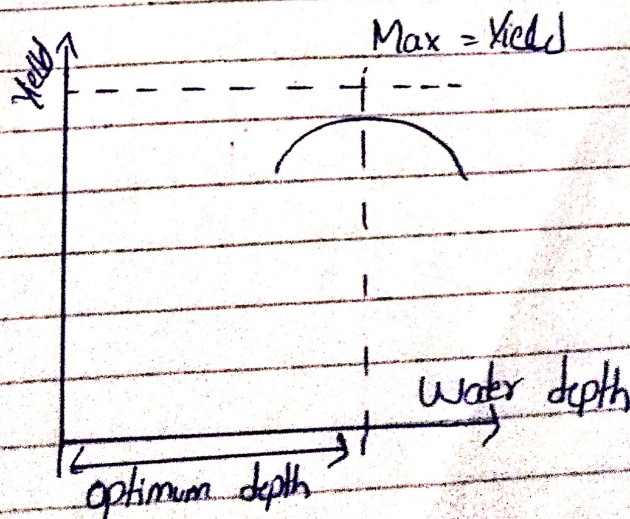 Max = Yield
Yield
Water depth
optimum depth